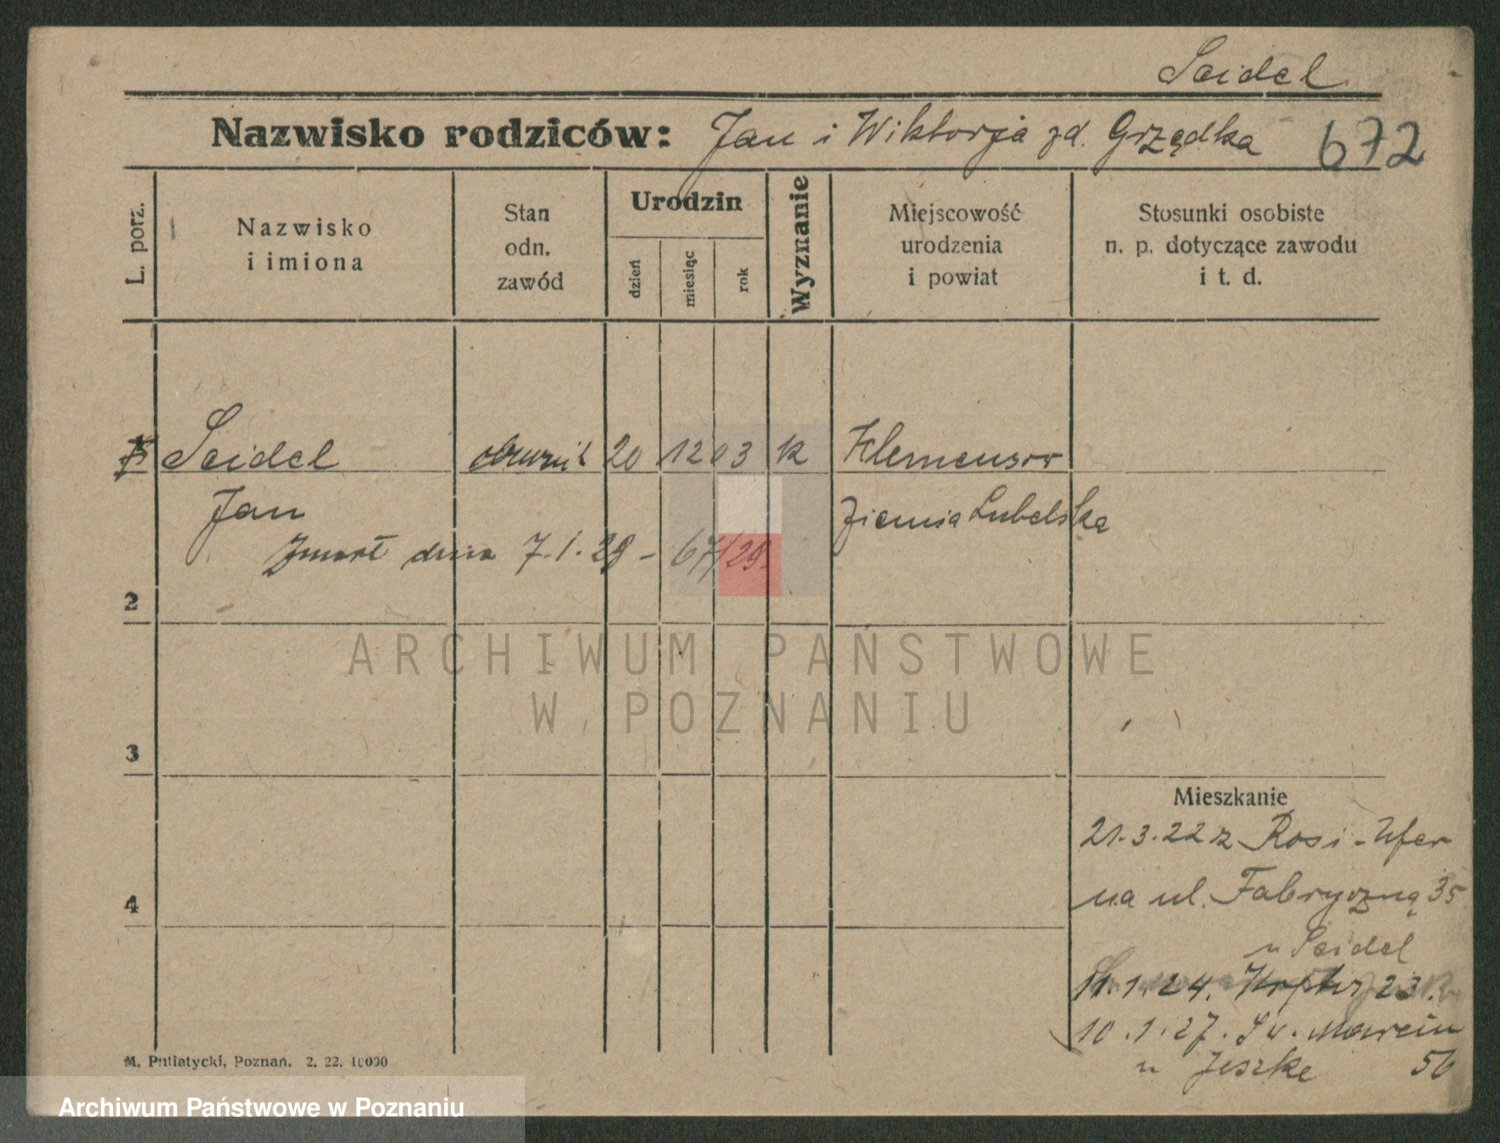 Seidel
Nazwisko rodziców: Jan i Wiktorja zd. Grządka 672
L. porz.
Nazwisko
i imiona
Stan
odn.
zawód
Urodzin
dzień
miesiąc
rok
Wyznanie
Miejscowość
urodzenia
i powiat
Stosunki osobiste
n. p. dotyczące zawodu
i t. d.
Seidel 20 12 03 k Klemensow
Jan Ziemia Lubelska
Zmarł dnia 7.1.29 - 67/29.
2
ARCHIWUM PAŃSTWOWE
W POZNANIU
3
Mieszkanie
21.3.22 z Rosi-Ufer
4
na ul. Fabryczną 35
u Seidel
11.1.24. 23.
10.1.27. Sw. Marcin
u Jeszke 56
M. Putiatycki, Poznań. 2. 22. 10000
Archiwum Państwowe w Poznaniu